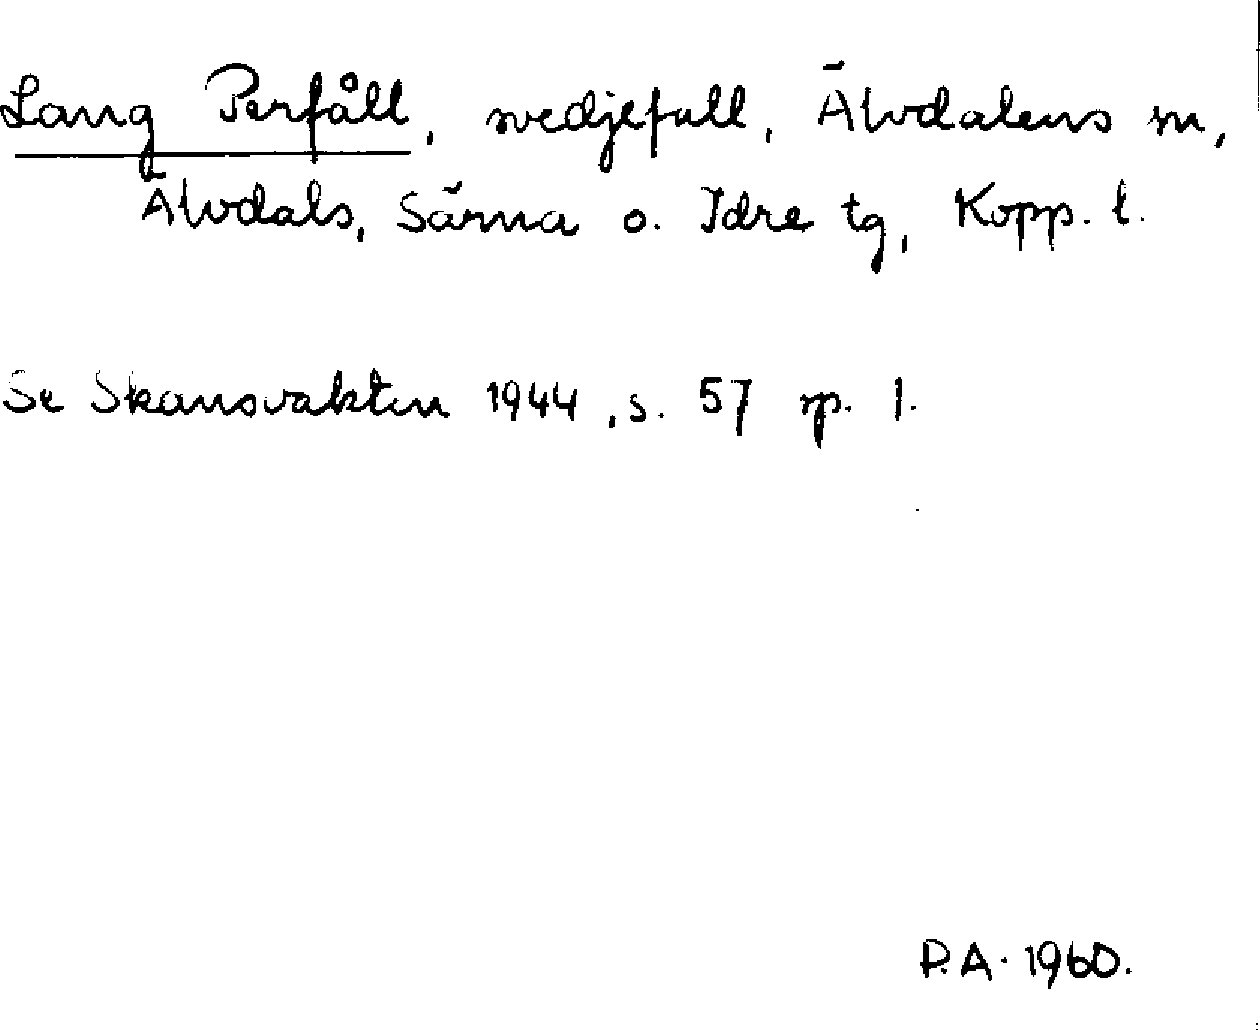 Lang Perfåll, svedjefall, Älvdalens sn,
Älvdals, Särna o. Idre tg, Kopp. l.
Se Skansvakten 1944, s. 57 sp. 1.
P.A. 1960.